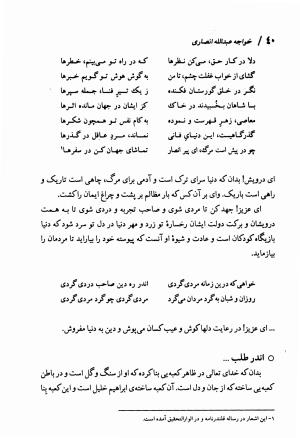 ۴۰ / خواجه عبدالله انصاری
دلا در کار حق، می‌کن نظرها
که در راه تو می‌بینم، خطرها
گشای از خواب غفلت چشم، تا من
به گوش هوش تو گویم خبرها
نگر در خلق گورستان فکنده
ز یک تیر فنا، جمله سپرها
بسا شاهان بخُسبیدند در خاک
کز ایشان در جهان مانده اثرها
معاصی، زهر قهرست و نموده
به کام نفس تو همچون شکرها
گذرگاهیست، این دنیای فانی
نماند، مرد عاقل در گذرها
چو در پیش است مرگ، ای پیر انصار
تماشای جهان کن در سفرها¹
ای درویش! بدان که دنیا سرای ترک است و آدمی برای مرگ، چاهی است تاریک و
راهی است باریک. وای بر آن کس که بار مظالم بر پشت و چراغ ایمان را کشت.
ای عزیز! جهد کن تا مردی شوی و صاحب تجربه و دردی شوی تا به همت
درویشان و برکت دولت ایشان رخسارهٔ تو زرد و مهر دنیا در دل تو سرد شود که دنیا
بازیگاه کودکان است و عادت و شیوهٔ او آنست که پیوسته خود را بیاراید تا مردمان را
بیازماید.
خواهی که درین زمانه مردی گردی
اندر ره دین صاحب دردی گردی
روزان و شبان به گرد مردان می‌گرد
مردی گردی چو گرد مردی گردی
... ای عزیز! در رعایت دلها کوش و عیب کسان می‌پوش و دین به دنیا مفروش.
○ اندر طلب ...
بدان که خدای تعالی در ظاهر کعبه‌یی بنا کرده که او از سنگ و گل است و در باطن
کعبه‌یی ساخته که از جان و دل است. آن کعبه ساخته‌ی ابراهیم خلیل است و این کعبه بنا
۱- این اشعار در رساله قلندرنامه و در انوارالتحقیق آمده است.